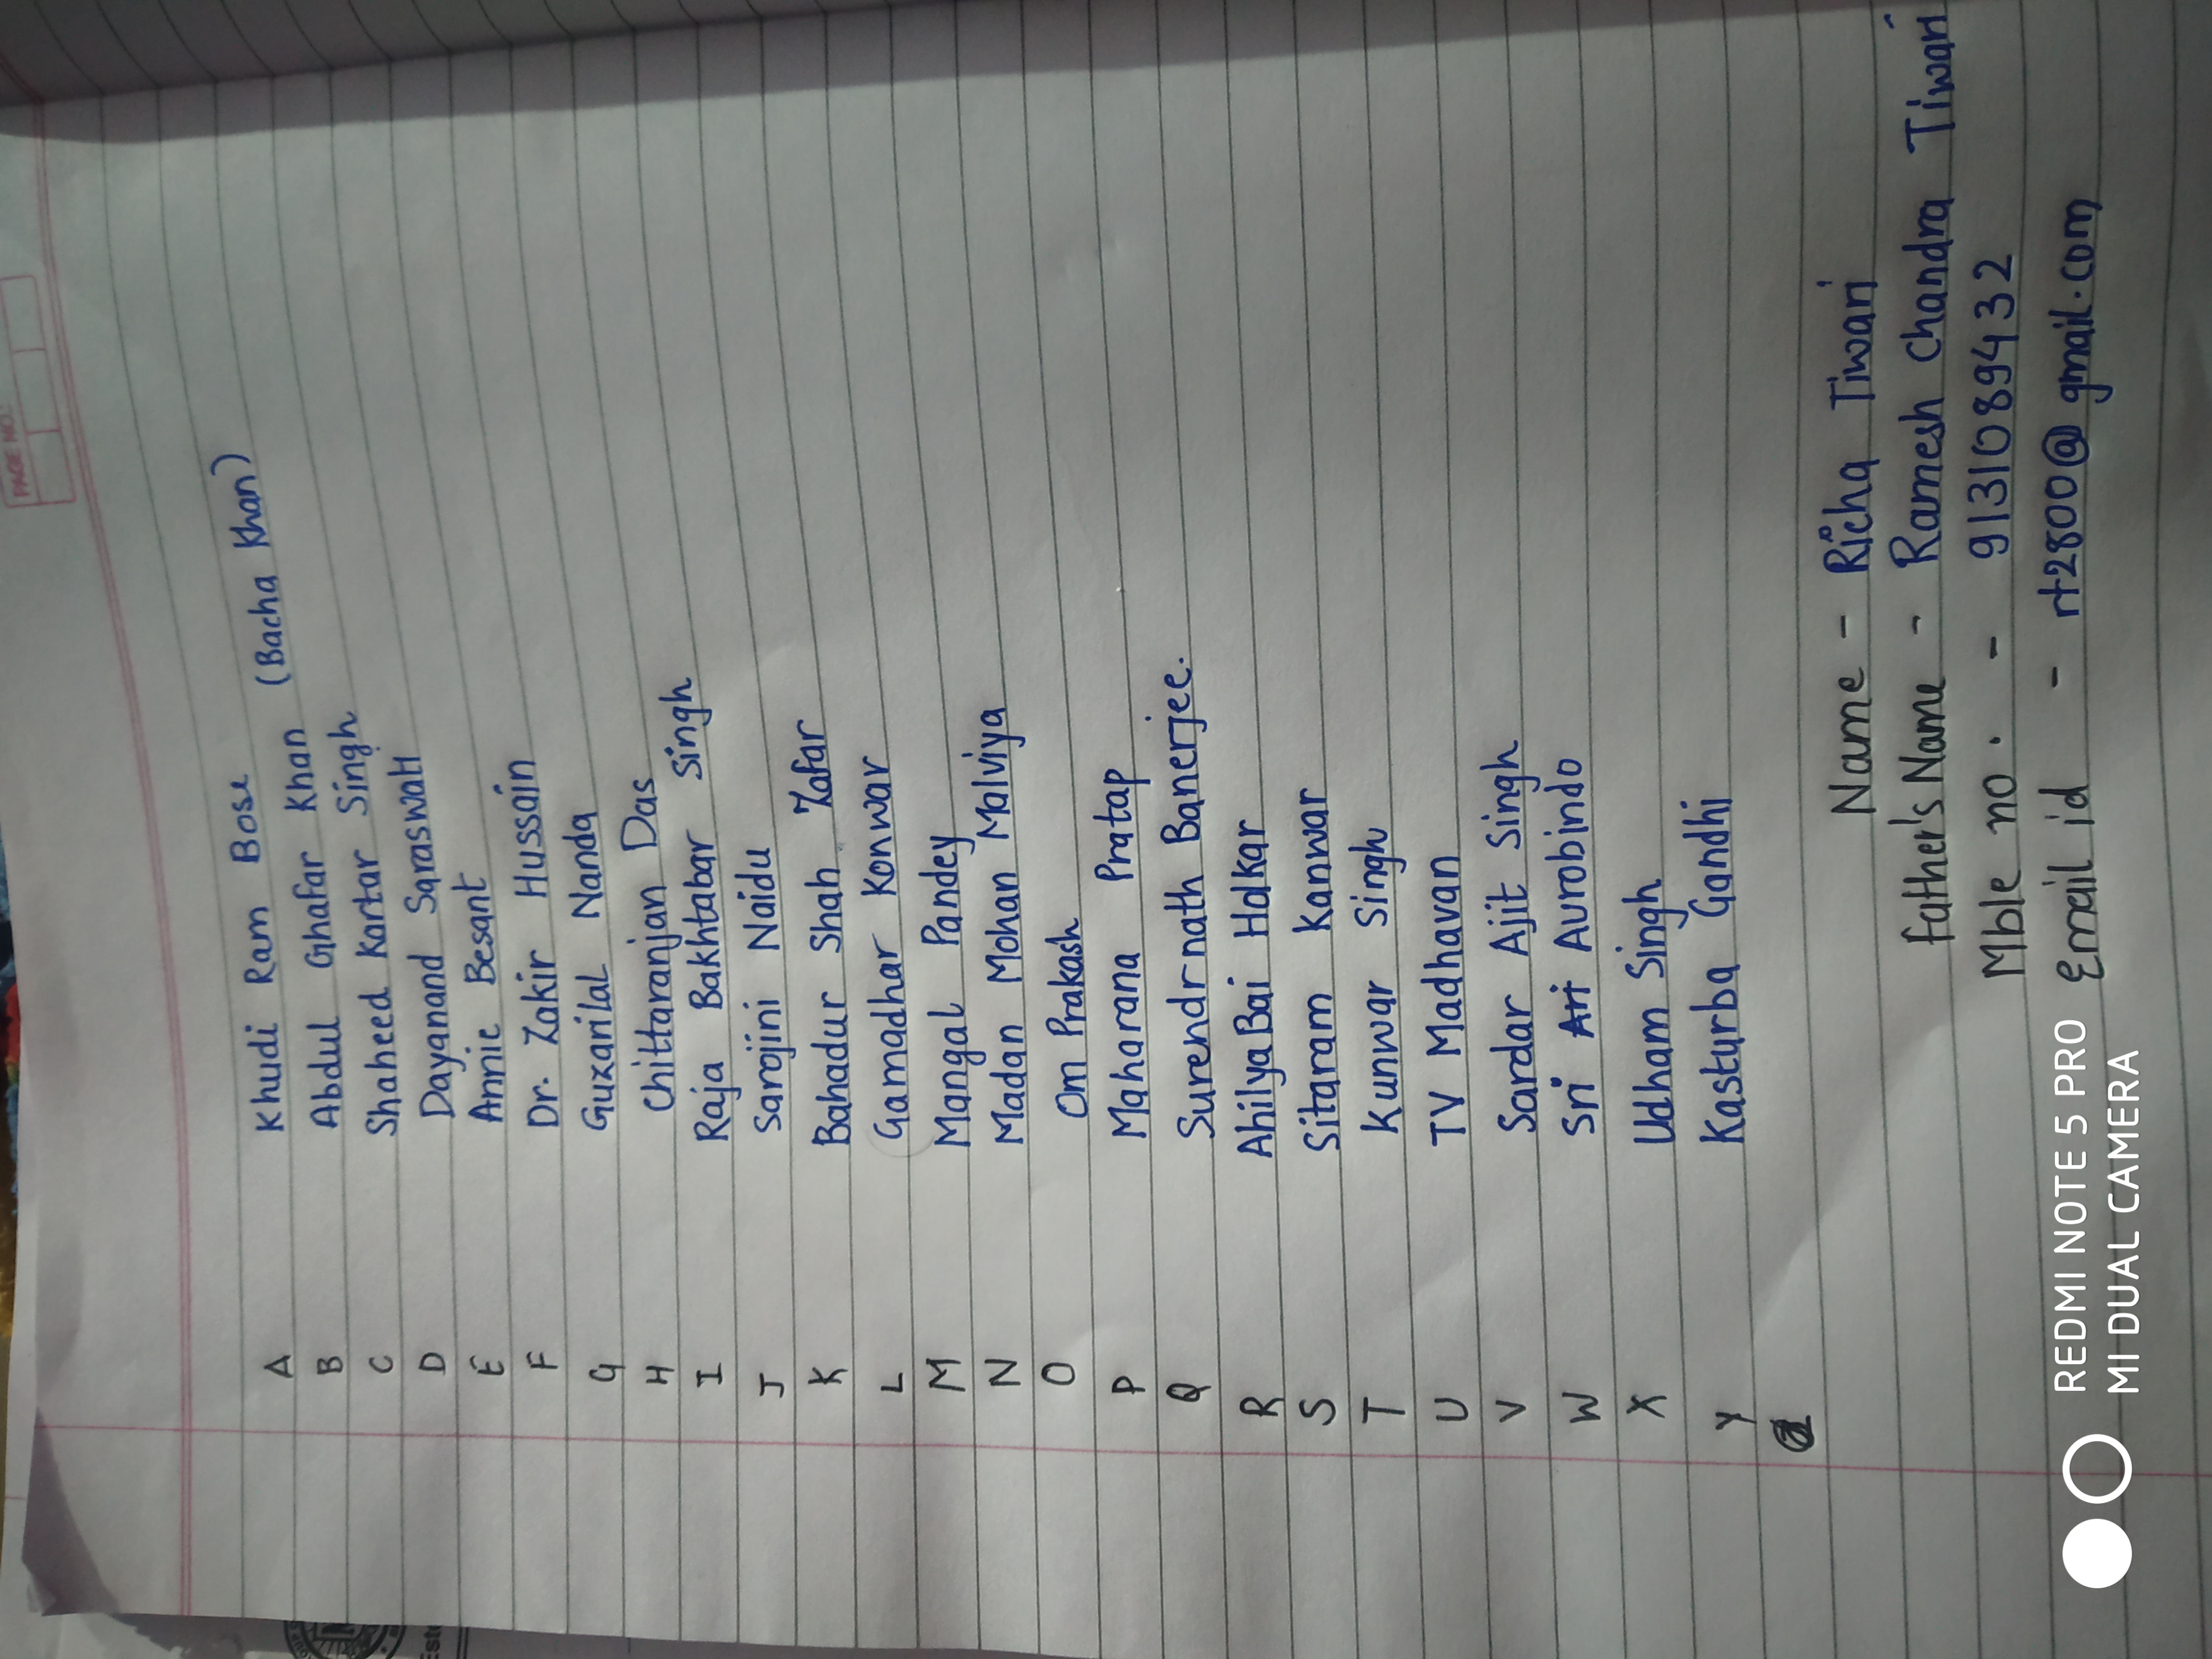 PAGE NO.:
A Khudi Ram Bose
B Abdul Ghafar Khan (Bacha Khan)
C Shaheed Kartar Singh
D Dayanand Saraswati
E Annie Besant
F Dr. Zakir Hussain
G Guxarilal Nanda
H Chittaranjan Das
I Raja Bakhtabar Singh
J Sarojini Naidu
K Bahadur Shah Zafar
L Gamadhar Konwar
M Mangal Pandey
N Madan Mohan Malviya
O Om Prakash
P Maharana Pratap
Q Surendrnath Banerjee.
R Ahilya Bai Holkar
S Sitaram Kanwar
T Kunwar Singh
U TV Madhavan
V Sardar Ajit Singh
W Sri Aurobindo
X Udham Singh
Y Kasturba Gandhi
Name - Richa Tiwari
Father's Name - Ramesh Chandra Tiwari
Mble no. - 9131089432
Email id - rt2800@gmail.com
REDMI NOTE 5 PRO
MI DUAL CAMERA